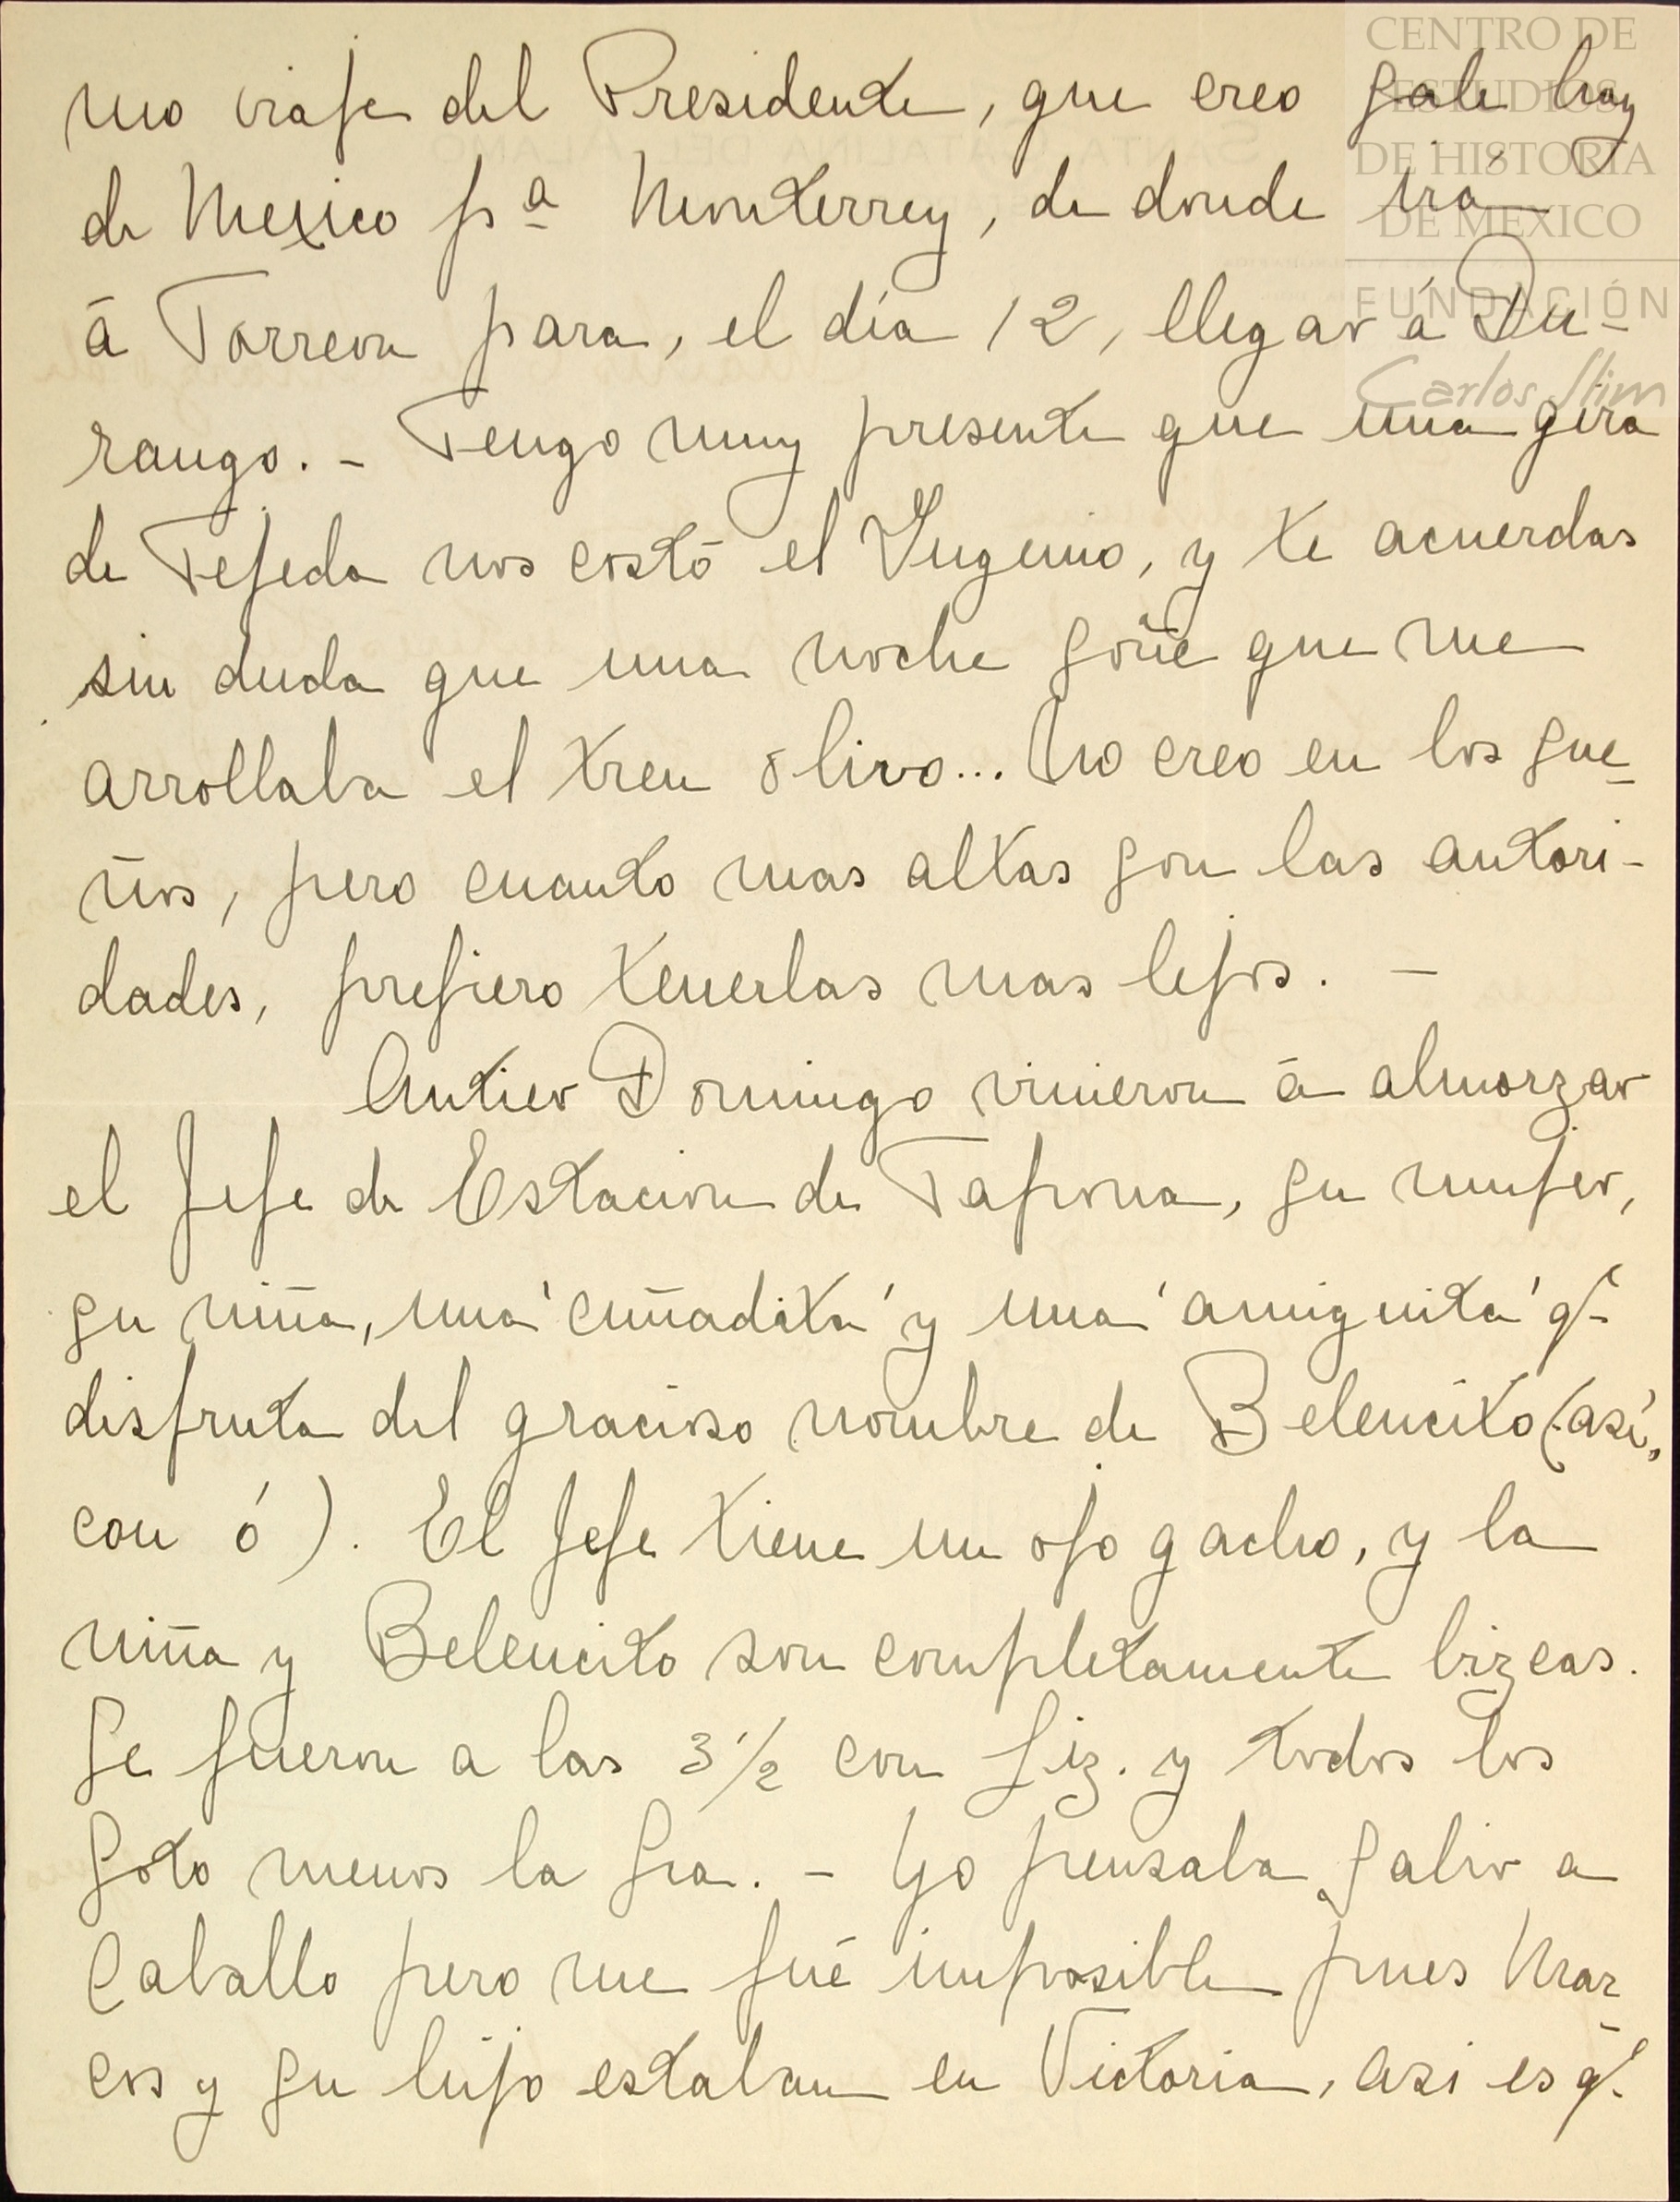 mo viaje del Presidente, que creo sale hoy
de Mexico pª Monterrey, de donde irá
á Torreon para, el día 12, llegar á Du-
rango. - Tengo muy presente que una gira
de Tejeda nos costó el Ingenio, y te acuerdas
sin duda que una noche soñé que me
arrollaba el tren olivo... No creo en los sue-
ños, pero cuanto mas altas son las autori-
dades, prefiero tenerlas mas lejos. -
Antier Domingo vinieron á almorzar
el Jefe de Estacion de Tapona, su mujer,
su niña, una 'cuñadita' y una 'amiguita' q.
disfruta del gracioso nombre de Belencito (así,
con ó). El Jefe tiene un ojo gacho, y la
niña y Belencito son completamente bizcas.
Se fueron a las 3 1/2 con Liz. y todos los
Soto menos la Sra. - Yo pensaba salir a
Caballo pero me fué imposible pues Mar
cos y su hijo estaban en Victoria, asi es q.
CENTRO DE
ESTUDIOS
DE HISTORIA
DE MEXICO
FUNDACIÓN
Carlos Slim